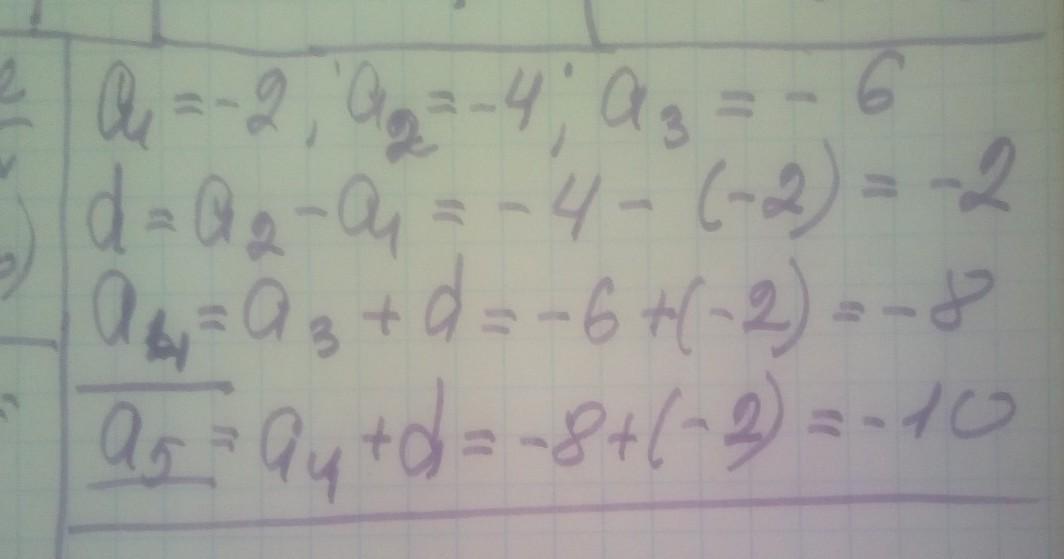 a₁ = -2, a₂ = -4, a₃ = - 6
d = a₂ - a₁ = - 4 - (-2) = -2
a₄ = a₃ + d = -6 + (-2) = -8
a₅ = a₄ + d = -8 + (-2) = -10